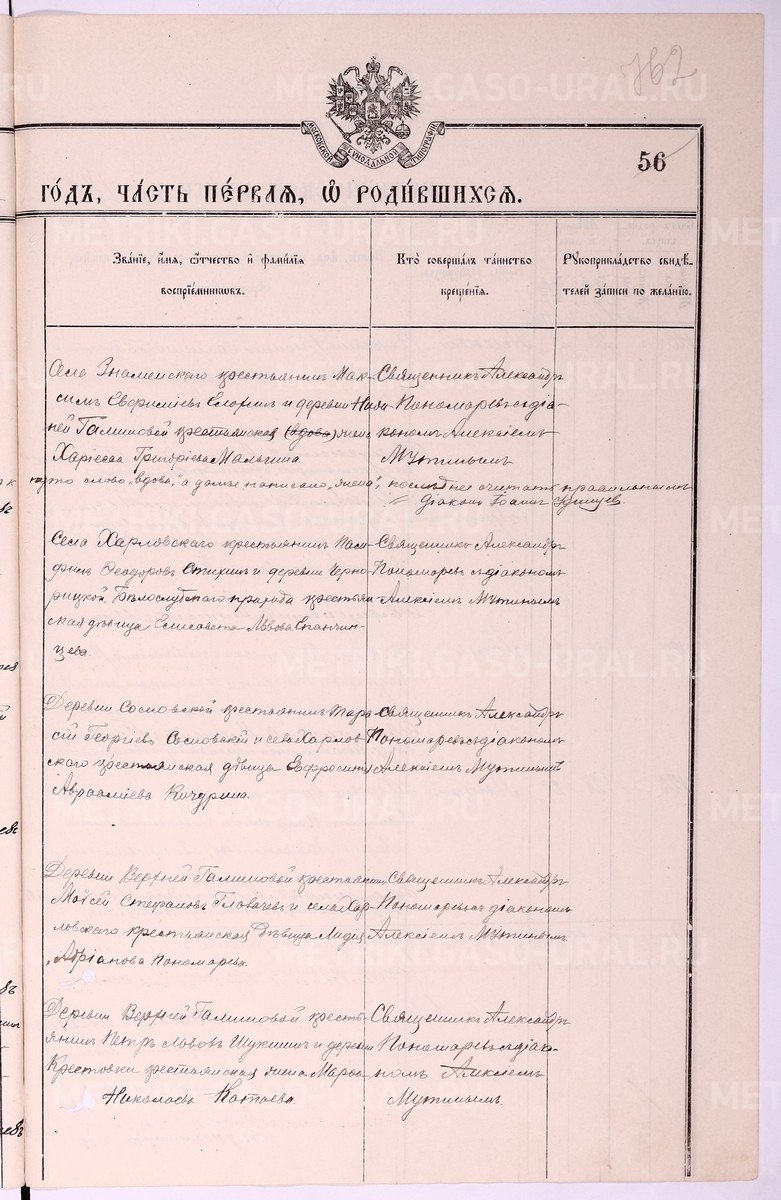 762
МОСКОВСКОЙ СѴНОДАЛЬНОЙ ТИПОГРАФІИ
56
ГОДЪ, ЧАСТЬ ПЕРВАЯ, Ѿ РОДИВШИХСЯ.
Званіе, имя, ѻтчество и фамилія
воспріемниковъ.
Кто совершалъ таинство
крещенія.
Рукоприкладство свидѣ-
телей записи по желанію.
Села Знаменскаго крестьянинъ Мак-
симъ Евфимiевъ и деревни Ниж-
ней Галишовой крестьянская (вдова) жена
Григорiева Малыгина
Священникъ Александръ
Пономаревъ съ дiа-
кономъ Алексiемъ
Мутинымъ
то слово „вдова“, а далѣе написано „жена“, послѣднее считать правильнымъ
Дiаконъ Iоаннъ
Села Харловскаго крестьянинъ Пам-
филъ Ѳеодоровъ Стихинъ и деревни Черно-
рицкой, Бѣлослудскаго прихода крестьян-
ская дѣвица Елисавета Львова Епанчин-
цева.
Священникъ Александръ
Пономаревъ съ дiакономъ
Алексiемъ Мутинымъ
Деревни Сосновской крестьянинъ Тара-
сiй Георгiевъ Сосновскiй и села Харлов-
скаго крестьянская дѣвица Евфросинiя
Авраамiева Кочурина.
Священникъ Александръ
Пономаревъ съ дiакономъ
Алексiемъ Мутинымъ
Деревни Верхней Галишовой крестьянинъ
Моѵсей Стефановъ Гловачевъ и села Хар-
ловскаго крестьянская дѣвица Лидiя
Адрiанова Пономарева.
Священникъ Александръ
Пономаревъ съ дiакономъ
Алексiемъ Мутинымъ.
Деревни Верхней Галишовой кресть-
янинъ Петръ Львовъ Шукшинъ и деревни
Крестовки крестьянская жена Марѳа
Николаева Катаева.
Священникъ Александръ
Пономаревъ съ дiако-
номъ Алексiемъ
Мутинымъ.
METRIKI.GASO-URAL.RU